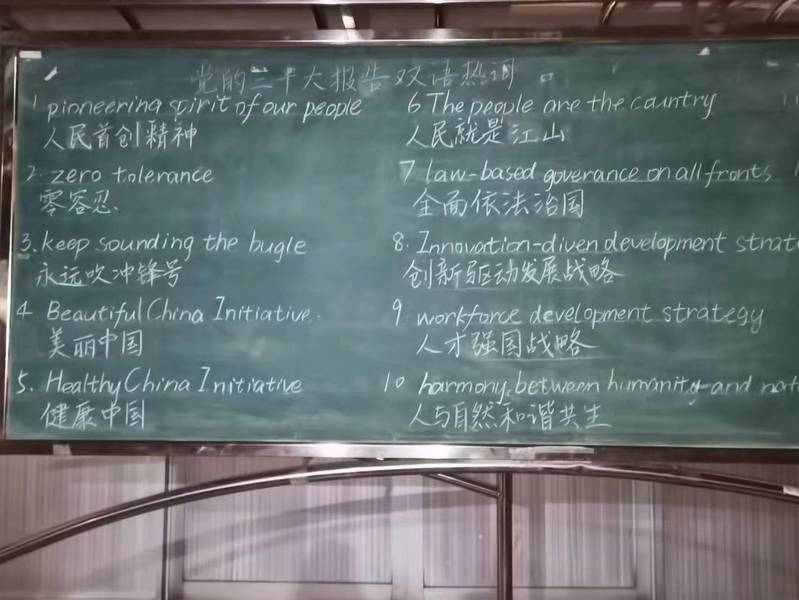 党的二十大报告双语热词。
1 pioneering spirit of our people
人民首创精神
2. zero tolerance
零容忍.
3. keep sounding the bugle
永远吹冲锋号
4 Beautiful China Initiative.
美丽中国
5. Healthy China Initiative
健康中国
6 The people are the country
人民就是江山
7 law-based goverance on all fronts
全面依法治国
8. Innovation-diven development strate
创新驱动发展战略
9. workforce development strategy
人才强国战略
10 harmony between humanity and nat
人与自然和谐共生